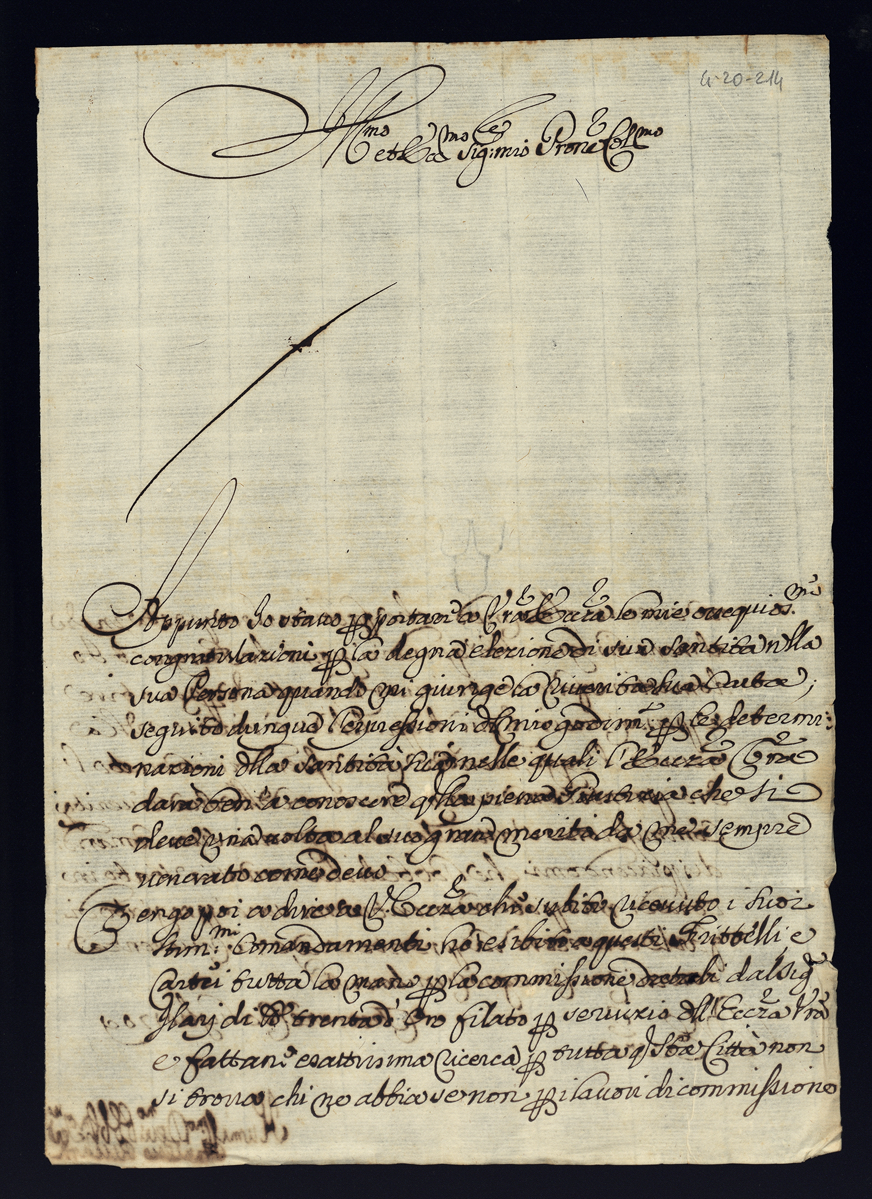 4-20-214
Ill.mo et Ecc.mo Sig.re mio Prone Coll.mo
Appunto io stavo per portare a Vra Ecc.za le mie ossequios.me
congratulazioni per la degna elezione di sua santità nella
sua Persona quando mi giunge la riverita sua
seguito dunque l'espressioni del mio godim.to per le determi:
nazioni della santità sua nelle quali l'Eccza Vra
darà ben a conoscere qlla piena che si
deve una volta al suo gran merito da me sempre
venerato come devo
Vengo poi a dire a V. Eccza che subito ricevuto i suoi
stim.mi Comandamenti hò esibito a questi Frittelli e
tutta la mano per la commissione datali dal Sig.r
Ilarj di trenta d'oro filato per servizio dell'Eccza Vra
e fattane esattissima ricerca per tutta qsta Città non
si trova chi ne abbia se non per i lavori di commissione